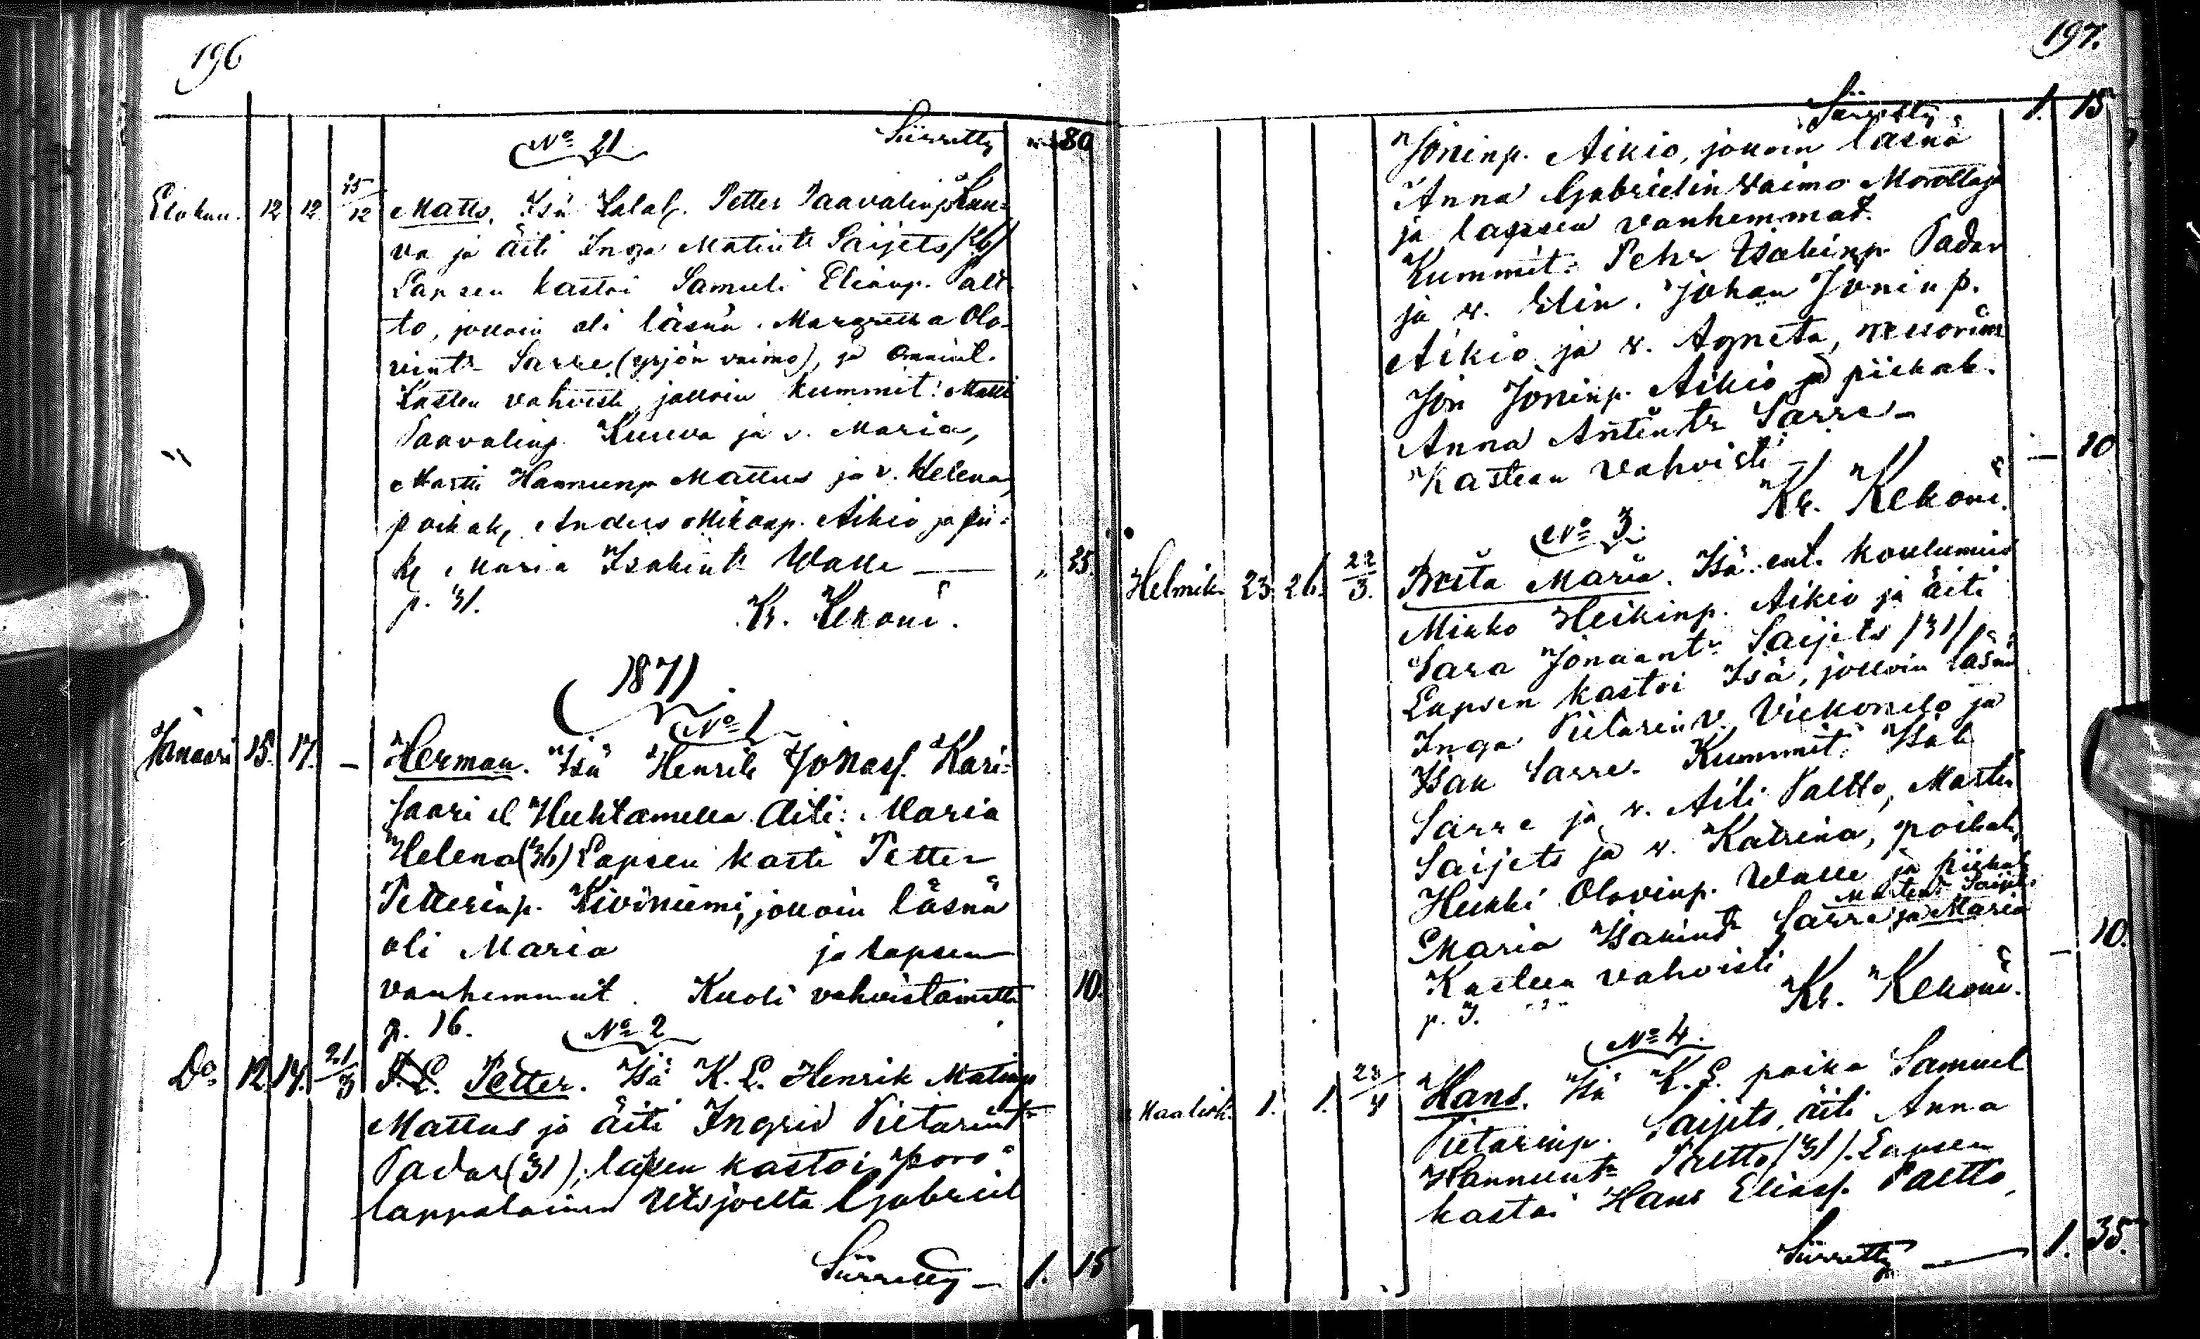 196
Siirretty 80
No 21
Elokuu. 12 12 25/12 Matts, Isä Talal. Petter Paavalinp. Kuu-
va ja äiti Inga Matint. Saijets (26)
Lapsen kastoi Samuli Elianp. Palt-
to, jolloin oli läsnä. Margretha Olo-
vint. Sarre (yrjön vaimo), ja
Kasten vahvisti, jolloin kummit: Matti
Paavalinp. Kuuva ja v. Maria,
Matti Hannunp Mattus ja v. Helena,
poikak. Anders Mikonp. Aikio ja pii-
k. Maria Isakint. Walle — " 25.
p. 31. K. Kekoni.
1871.
No 1
Januari 15. 17. — Herman. Isä Henrik Jonasp. Kari-
saari el Huhtamella. Äiti: Maria
Helena (36) Lapsen kasti Petter
Petterinp. Kiviniemi, jolloin läsnä
oli Maria ja lapsen
vanhemmat. Kuoli vahvistamatta 10.
p. 16.
No 2
Do 12. 17. 21/3 Petter. Isä K. L. Henrik Matinp
Mattus ja äiti Ingrid Pietarint.
Padar (31); lapsen kastoi poro-
lappalainen Utsjoelta Gabriel
Siirretty — 1. 15
197.
Siirretty 1. 15
Joninp. Aikio, jolloin läsnä
Anna Gabrielin vaimo Morottaja
ja lapsen vanhemmat.
Kummit: Pehr Isakinp. Padar
ja v. Elin. Johan Joninp.
Aikio ja v. Agneta, nuorim
Jon Joninp. Aikio ja piikak.
Anna Antint. Sarre —
Kasteen vahvisti — 10
K. Kekoni.
No 3.
Helmik. 23. 26. 22/3. Brita Maria. Isä: ent. koulumies
Mikko Heikinp. Aikio ja äiti
Sara Jonaant. Saijets (31)
Lapsen kastoi Isä, jolloin läsnä
Inga Pietarin v. Vickonelo ja
Isak Sarre. Kummit: Isak
Sarre ja v. Aili Paltto, Martin
Saijets ja v. Katrina, poikak.
Heikki Olovinp. Walle ja piikak
Maria Isakint. Sarre ja Maria Martent. Saijets.
Kasteen vahvisti — 10.
K. Kekoni.
p. 7.
No 4.
Maalisk. 1. 1. 23/4 Hans. Isä K. L. poika Samuel
Pietarinp. Saijets, äiti Anna
Hannunt. Paltto (31). Lapsen
kastoi Hans Eliasp. Paltto,
Siirretty — 1. 35.